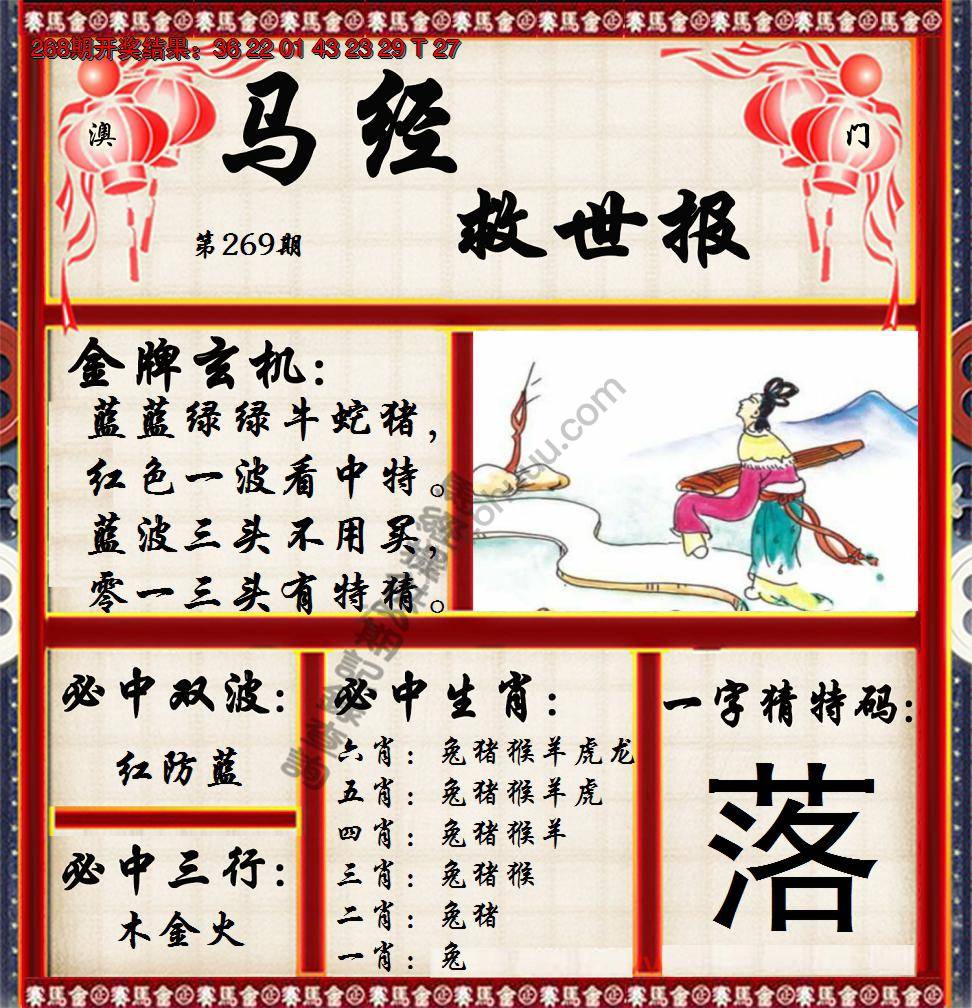 268期开奖结果：36 22 01 43 23 29 T 27
澳
门
马经
救世报
第269期
金牌玄机：
蓝蓝绿绿牛蛇猪，
红色一波看中特。
蓝波三头不用买，
零一三头有特猜。
必中双波：
红防蓝
必中三行：
木金火
必中生肖：
六肖：兔猪猴羊虎龙
五肖：兔猪猴羊虎
四肖：兔猪猴羊
三肖：兔猪猴
二肖：兔猪
一肖：兔
一字猜特码：
落